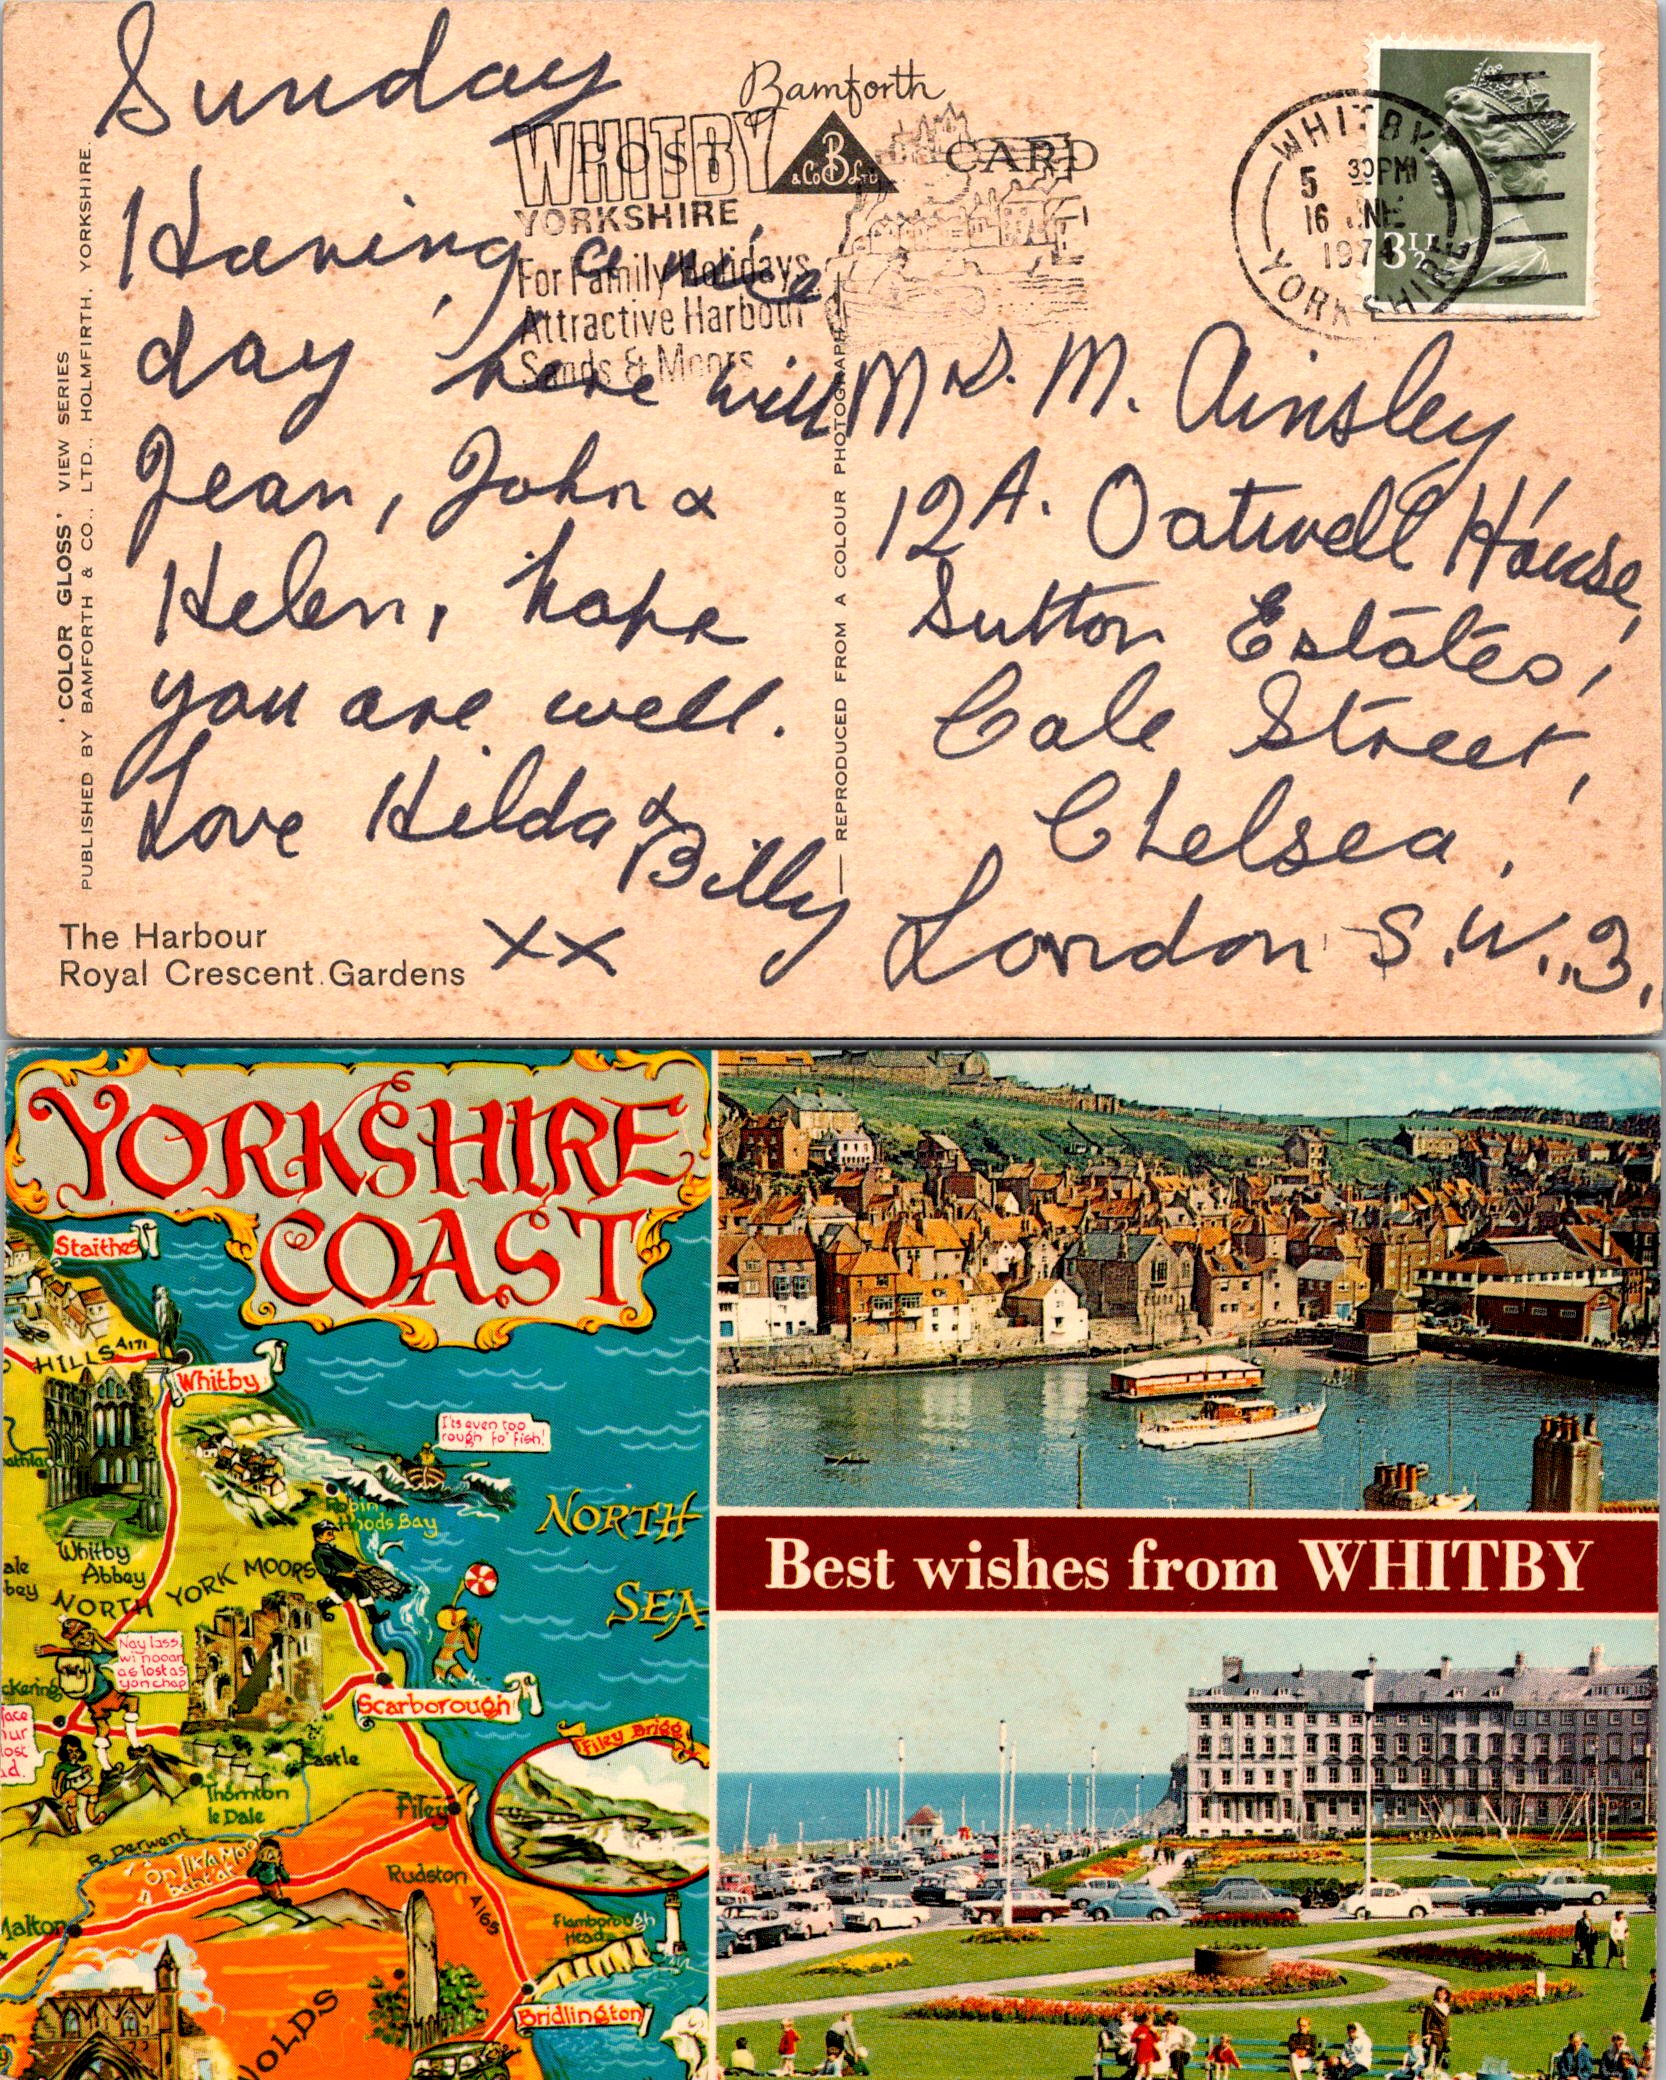 Sunday
Having a nice
day here will
Jean, John &
Helen, hope
you are well.
Love Hilda &
Billy
XX
Bamforth
POST CARD
B
& Co Ltd
WHITBY
YORKSHIRE
For Family Holidays
Attractive Harbour
Sands & Moors
WHITBY
5 30PM
16 JNE
1974
YORKSHIRE
3½
Mrs. M. Ainsley
12A. Oatwell House,
Sutton Estates,
Cale Street,
Chelsea,
London S.W.3.
'COLOR GLOSS' VIEW SERIES
PUBLISHED BY BAMFORTH & CO., LTD., HOLMFIRTH, YORKSHIRE.
REPRODUCED FROM A COLOUR PHOTOGRAPH
The Harbour
Royal Crescent Gardens
YORKSHIRE
COAST
Staithes
HILLS A171
Whitby
It's even too
rough fo' fish!
Robin
Hoods Bay
NORTH
SEA
Whitby
Abbey
ale
bey
NORTH YORK MOORS
Nay lass,
wi nooan
as lost as
yon chap
ckering
face
ur
lost
ad.
Scarborough
Filey Brigg
Castle
Thornton
le Dale
Filey
R. Derwent
On Ilkla Moor
baht 'at
Rudston
A165
Malton
Flamborough
Head
Bridlington
WOLDS
Best wishes from WHITBY